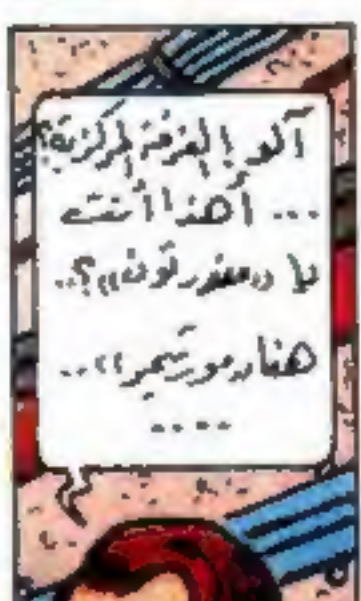 آلو! الغرفة المركزية؟
... أهذا أنت
يا «مورتون»؟..
هنا «مورتيمر»..
....